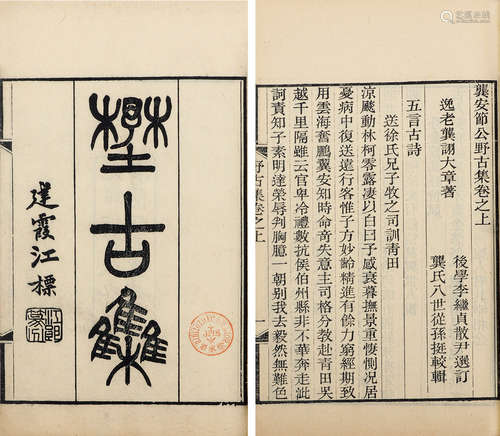 龔安節公野古集卷之上
逸老龔詡大章著
後學李繼貞散尹選訂
龔氏八世從孫挺較輯
五言古詩
送徐氏兄子牧之司訓靑田
涼颷動林柯零露凄以白日予感衰暮撫景重悽惻况居
憂病中復送遠行客惟子方妙齡精進有餘力窮經期致
用雲海奮鵬翼安知時命奇失意主司格分敎赴靑田吴
越千里隔雖云官卑冷禮數抗侯伯州縣非不華奔走訿
訶責知子素明達榮辱判胸臆一朝別我去毅然無難色
野古集卷之上
壄古雧
建霞江標